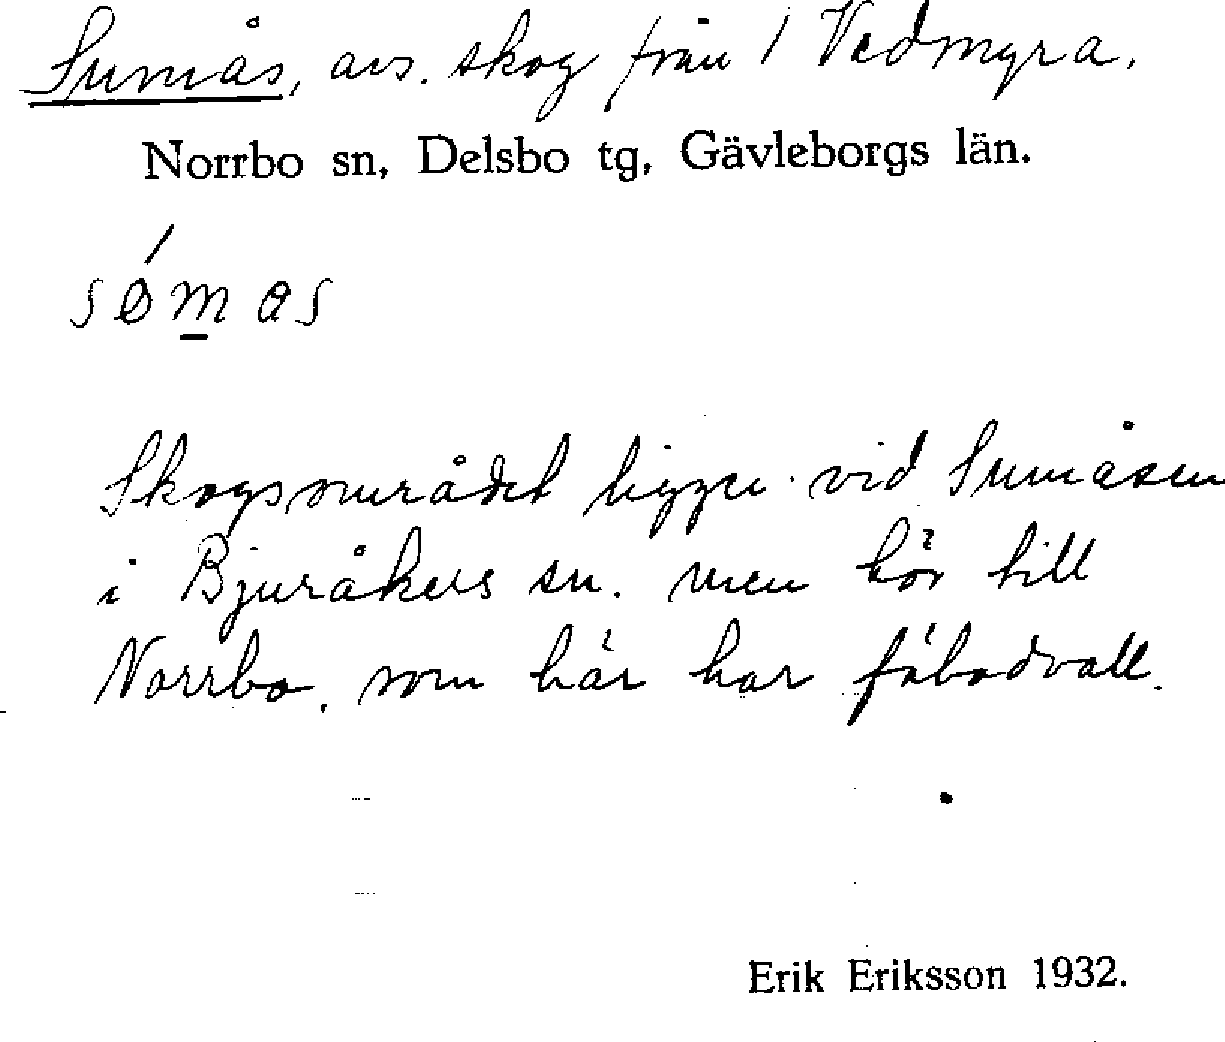 Sumås, avs. skog från 1 Vedmyra.
Norrbo sn, Delsbo tg, Gävleborgs län.
sømas
Skogsområdet ligger vid Sumåsen
i Bjuråkers sn. men hör till
Norrbo, som här har fäbodvall.
Erik Eriksson 1932.